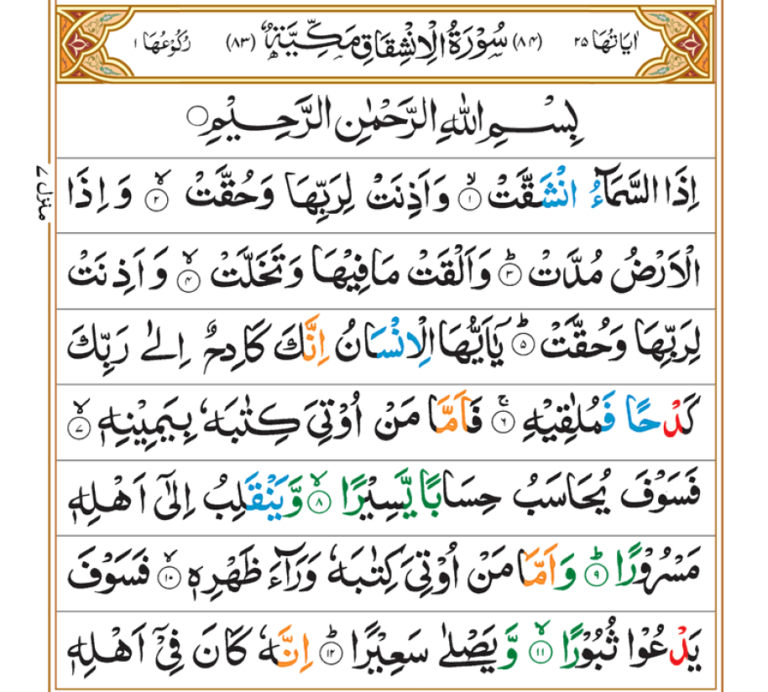 اٰيَاتُهَا ٢٥ (٨٤) سُوْرَةُ الْاِنْشِقَاقِ مَكِّيَّةٌ (٨٣) رُكُوْعُهَا ١
بِسْمِ اللّٰهِ الرَّحْمٰنِ الرَّحِيْمِ
اِذَا السَّمَآءُ انْشَقَّتْ ۙ‏﴿۱﴾ وَاَذِنَتْ لِرَبِّهَا وَحُقَّتْ ۙ‏﴿۲﴾ وَاِذَا
منزل ٧
الْاَرْضُ مُدَّتْ ؕ‏﴿۳﴾ وَاَلْقَتْ مَا فِيْهَا وَتَخَلَّتْ ۙ‏﴿۴﴾ وَاَذِنَتْ
لِرَبِّهَا وَحُقَّتْ ؕ‏﴿۵﴾ يٰۤاَيُّهَا الْاِنْسَانُ اِنَّكَ كَادِحٌ اِلٰى رَبِّكَ
كَدْحًا فَمُلٰقِيْهِ ۚ‏﴿۶﴾ فَاَمَّا مَنْ اُوْتِىَ كِتٰبَهٗ بِيَمِيْنِهٖ ۙ‏﴿۷﴾
فَسَوْفَ يُحَاسَبُ حِسَابًا يَّسِيْرًا ۙ‏﴿۸﴾ وَّيَنْقَلِبُ اِلٰٓى اَهْلِهٖ
مَسْرُوْرًا ؕ‏﴿۹﴾ وَاَمَّا مَنْ اُوْتِىَ كِتٰبَهٗ وَرَآءَ ظَهْرِهٖ ۙ‏﴿۱۰﴾ فَسَوْفَ
يَدْعُوْا ثُبُوْرًا ۙ‏﴿۱۱﴾ وَّيَصْلٰى سَعِيْرًا ؕ‏﴿۱۲﴾ اِنَّهٗ كَانَ فِىْۤ اَهْلِهٖ